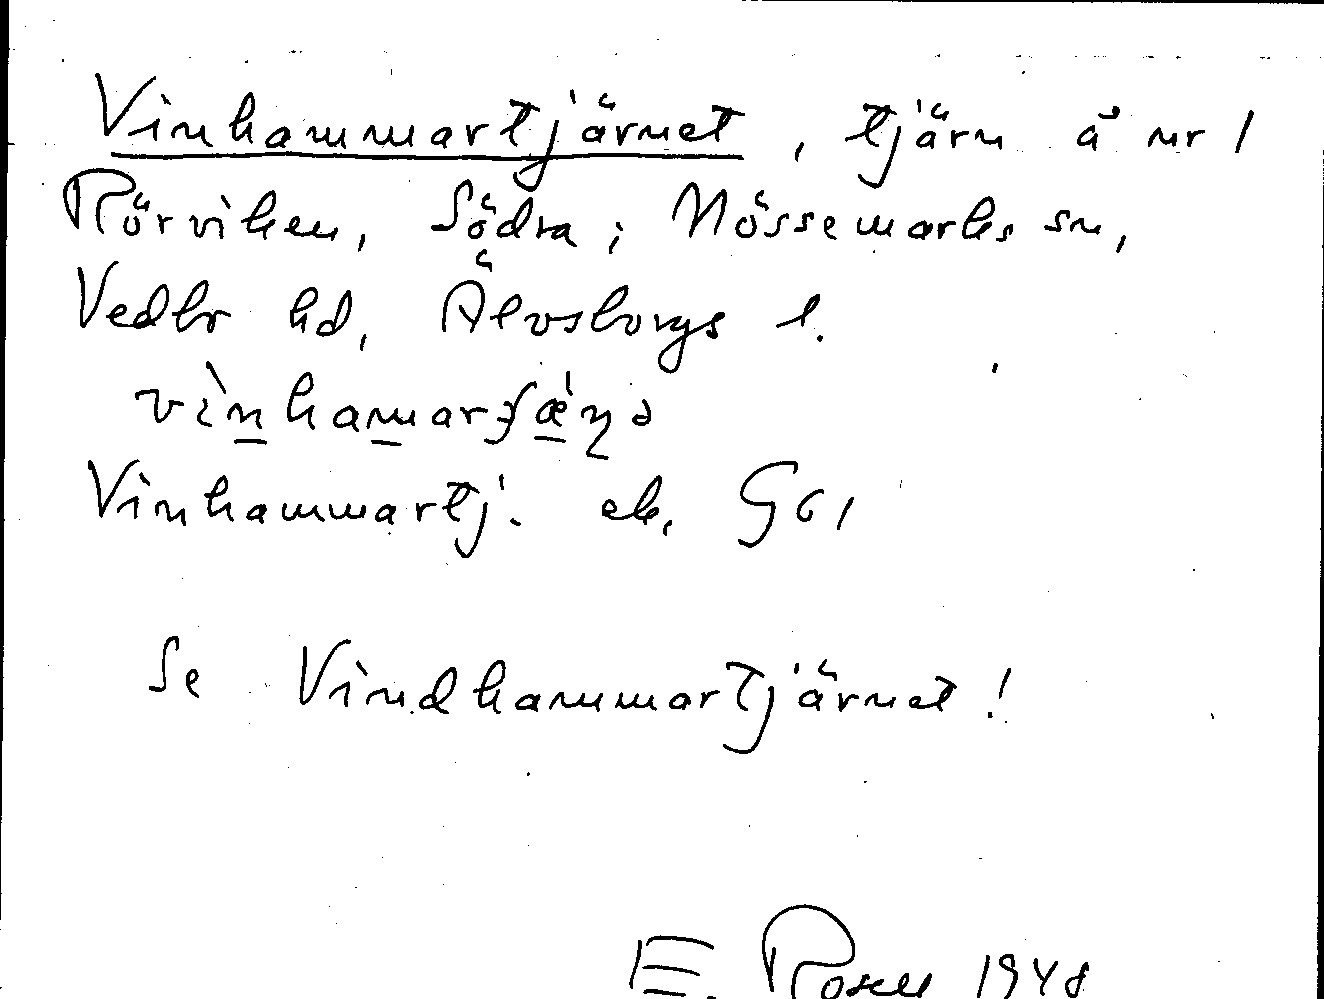 Vinhammartjärnet, tjärn å nr 1
Rörviken, Södra; Nössemarks sn,
Vedbo hd, Älvsborgs l.
Vinhammartj. ek. G61
Se Vindhammartjärnet!
E. Rosell 1948